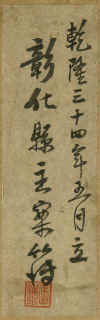 乾隆三十四年五月立
彰化縣主案簿